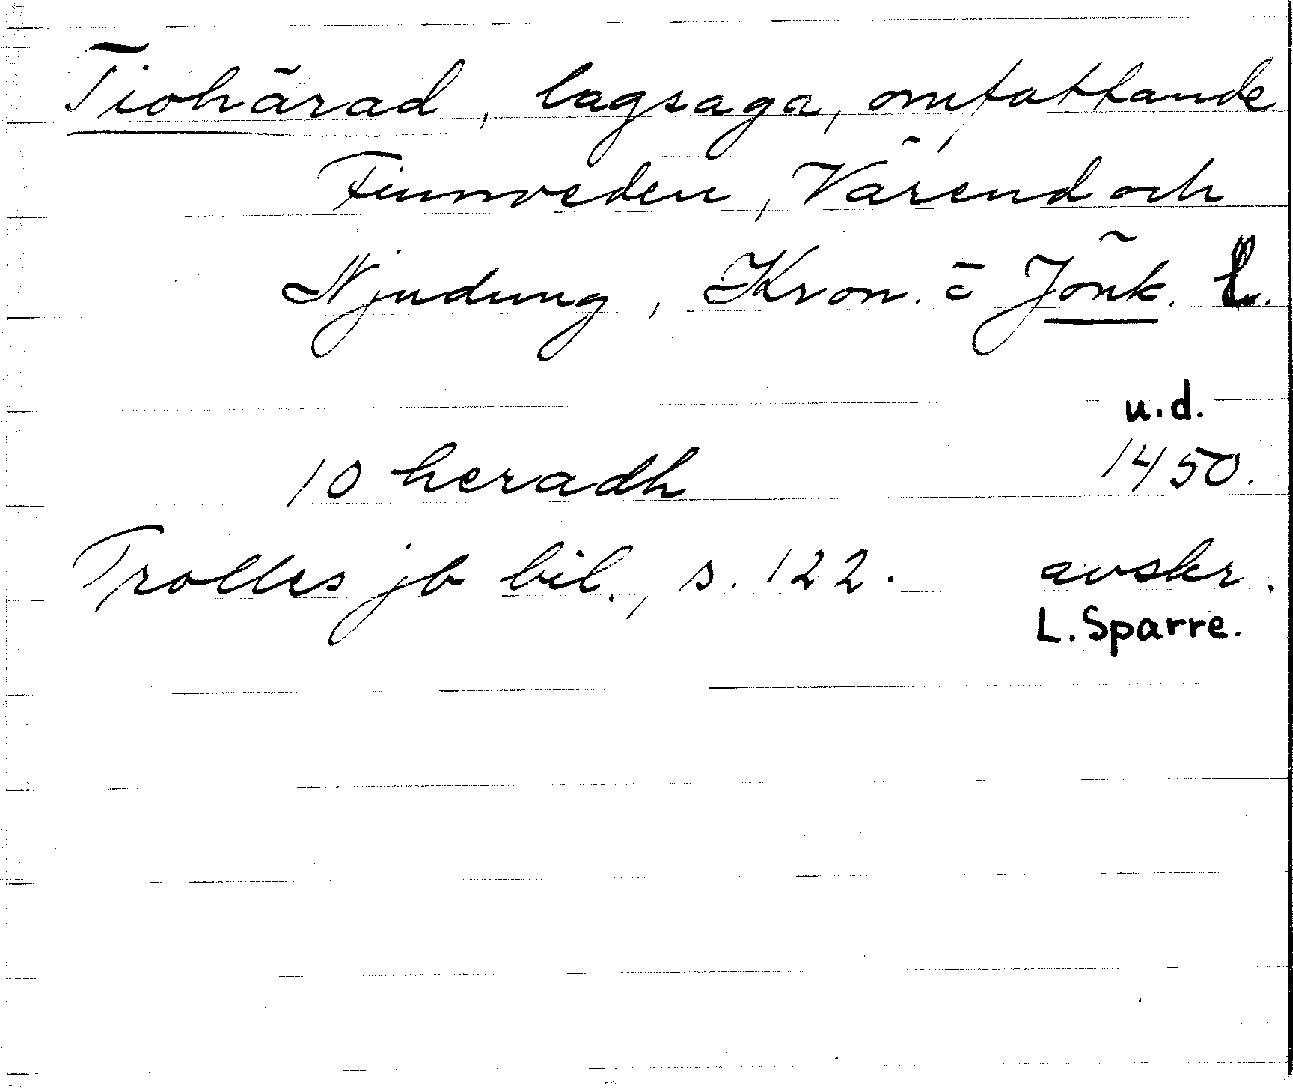 Tiohärad, lagsaga, omfattande
Finnveden, Värend och
Njudung, Kron. o Jönk. L.
u.d.
10 heradh 1450.
Trolles jb bil., s. 122. avskr.
L. Sparre.